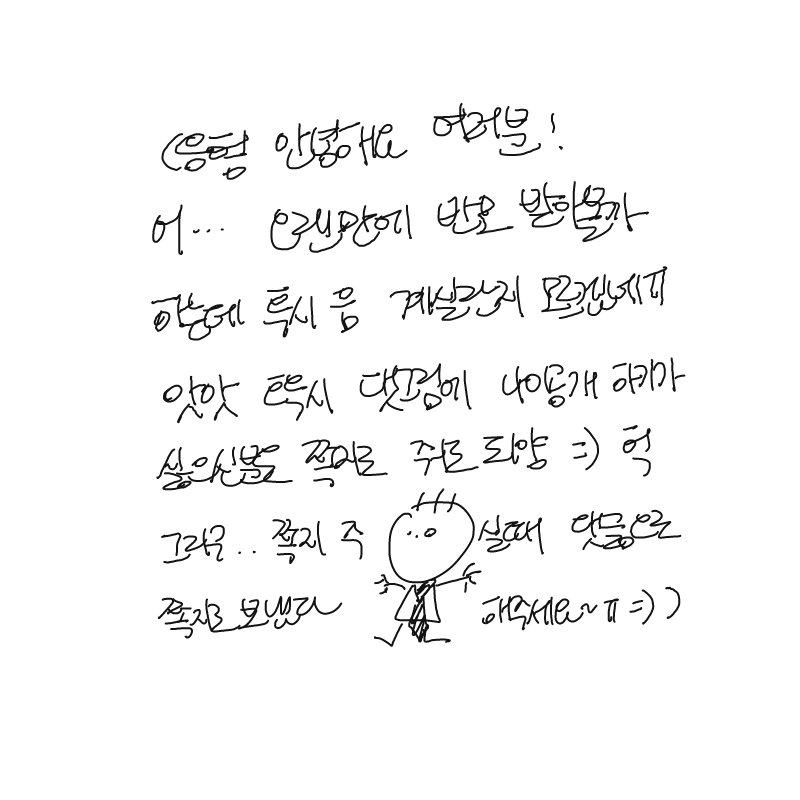 안녕하세요 여러분!
어... 오랜만에 반모 받아볼까
하는데 혹시 음 계실란지 모르겠네ㅠ
앗앗 혹시 댓글에 나이공개 하기가
싫으신분들 쪽지로 줘도 되양 =) 헉
그리구.. 쪽지 주실때 댓글으로
쪽지로 보냈다 해주세요~ㅠ =))